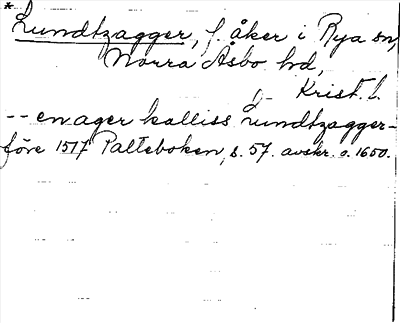 *
Lundtzagger, f. åker i Rya sn,
Norra Åsbo hd,
Krist. l.
-- en ager kalliss Lundtzagger-
före 1517 Palteboken, s. 57. avskr. o. 1650.